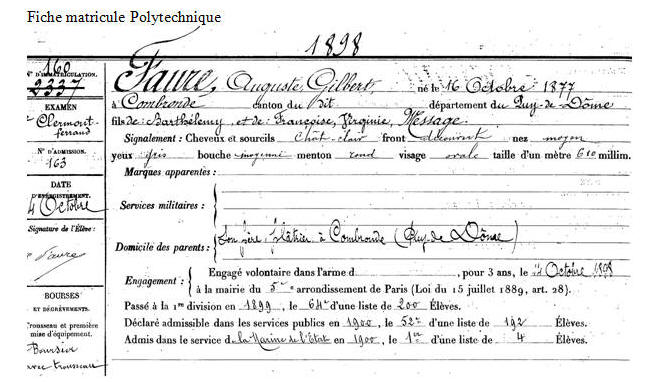 Fiche matricule Polytechnique
1898
160
N° D'IMMATRICULATION.
2337
EXAMEN
Clermont-
ferrand
N° D'ADMISSION.
163
DATE
D'ENREGISTREMENT.
4 Octobre
Signature de l'Élève :
Faure
BOURSES
ET DÉGRÈVEMENTS.
Trousseau et première
mise d'équipement.
Boursier
avec trousseau
Faure, Auguste Gilbert, né le 16 Octobre 1877
à Combronde canton du dit département du Puy-de-Dôme
fils de Barthélemy, et de Françoise, Virginie, Message.
Signalement : Cheveux et sourcils chât-clair front découvert nez moyen
yeux gris bouche moyenne menton rond visage ovale taille d'un mètre 610 millim.
Marques apparentes :
Services militaires :
Domicile des parents : Son père, plâtrier à Combronde (Puy-de-Dôme)
Engagement : Engagé volontaire dans l'arme d , pour 3 ans, le 4 Octobre 1898
à la mairie du 5e arrondissement de Paris (Loi du 15 juillet 1889, art. 28).
Passé à la 1re division en 1899, le 64e d'une liste de 200 Élèves.
Déclaré admissible dans les services publics en 1900, le 52e d'une liste de 192 Élèves.
Admis dans le service d la Marine de l'État en 1900, le 1er d'une liste de 4 Élèves.